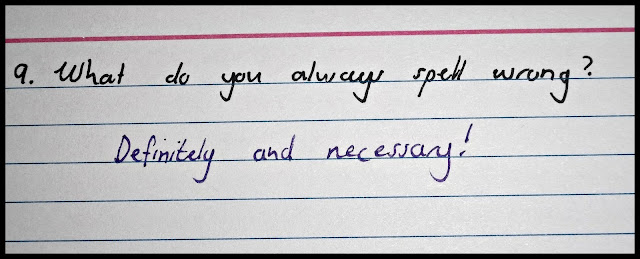 9. What do you always spell wrong?
Definitely and necessary!